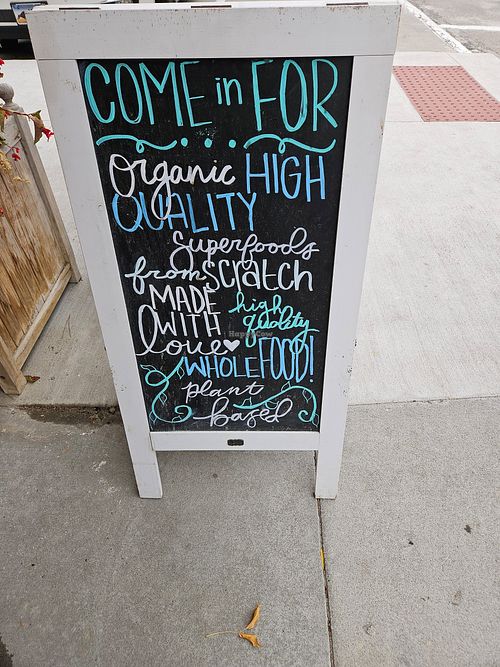 COME in FOR
Organic HIGH
QUALITY
superfoods
from scratch
MADE
WITH
love
high
quality
WHOLE FOOD!
plant
based
HappyCow